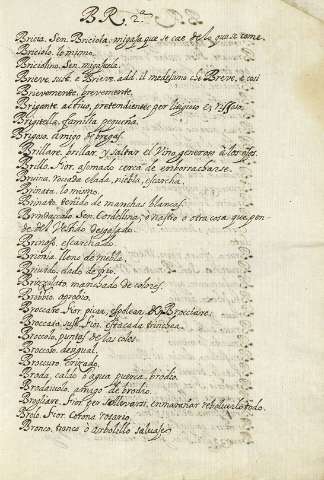 BR, 2ª
Bricia. Sen. Briciola, migaja que se cae de lo que se come.
Briciolo, lo mismo.
Briciolino. Sen. migajuela.
Brieve sust. e Brieve. add. il medesimo che Breve, e così
Brievemente, brevemente.
Brigante activo, pretendiente,
Brigatella, familla pequeña.
Brigoso, amigo de bregas.
Brillare, brillar, y saltar el Vino generoso a los ojos.
Brillo. Fior, asomado cerca de emborracharse.
Brina, rosada elada, niebla, escarcha.
Brinata, lo mismo.
Brinato, teñido de manchas blancas.
Sen. Cordellina, o nastro o otra cosa que pen-
de del Vestido desgalado.
Brinoso, escarchado.
lleno de niebla.
elado de frio.
Brizzolato, manchado de colores.
Brobbio, oprobio.
Broccare. Fior. picar, espolear,
Broccata, sust. Fior. estacada trinchea.
Broccolo, puntas de las coles.
Broccoso, desigual.
Broda, caldo o agua puerca, brodio.
Brodaiuolo, amigo de brodio.
Brogliare. Fior. per sollevarsi, enmarañar rebolverlo todo.
Brolo. Fior. Corona rosario.
Bronco, tronco ò arbolillo salvaje.